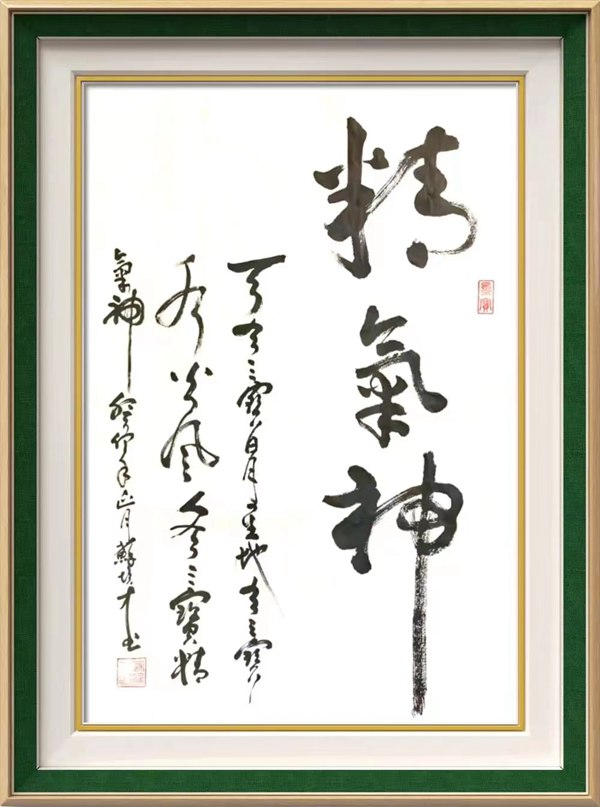 精氣神
天有三寶日月星地有三寶
水火風人有三寶精
氣神 癸卯年正月蘇才书